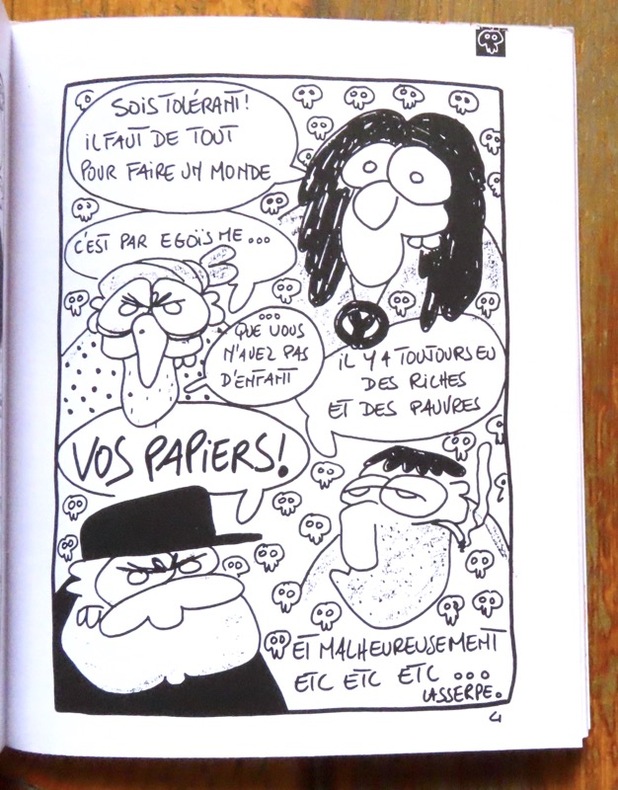 SOIS TOLÉRANT!
IL FAUT DE TOUT
POUR FAIRE UN MONDE
C'EST PAR EGOÏSME...
...
QUE VOUS
N'AVEZ PAS
D'ENFANT
IL Y A TOUJOURS EU
DES RICHES
ET DES PAUVRES
VOS PAPIERS!
ET MALHEUREUSEMENT
ETC ETC ETC ...
LASSERPE.
4